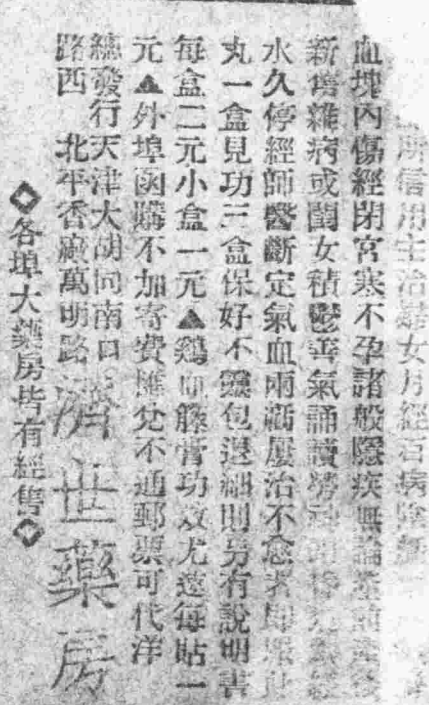 所信用主治婦女月經百病
血塊內傷經閉宮寒不孕諸般隱疾無論產前產後
新舊雜病或閨女積鬱善氣誦讀勞
水久停經師醫斷定氣血兩虧屢治不愈者
丸一盒見功三盒保好不靈包退細則另有說明書
每盒二元小盒一元▲鷄血藤膏功效尤速每貼一
元▲外埠函購不加寄費匯兌不通郵票可代洋
總發行天津大胡同南口
路西 北平香廠萬明路
濟世藥房
◆各埠大藥房皆有經售◆